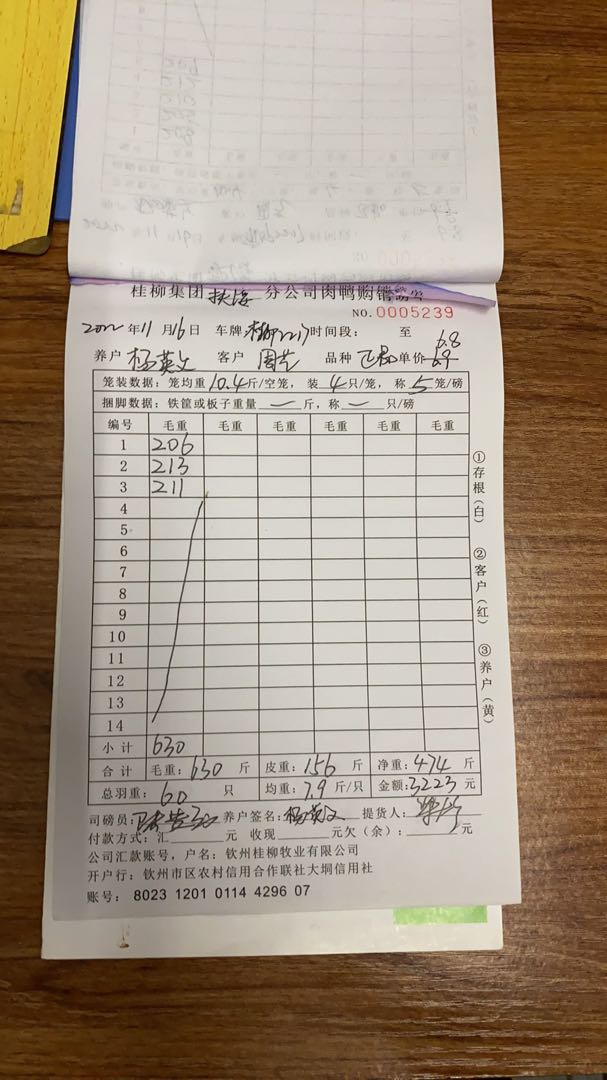 桂柳集团 扶绥 分公司肉鸭购销
NO.0005239
2022年11月16日 车牌 2217时间段: 至
6.8
养户 杨英文 客户 周芒 品种 单价 6.9
笼装数据:笼均重10.4斤/空笼,装4只/笼,称5笼/磅
捆脚数据:铁筐或板子重量 一 斤,称 一 只/磅
编号 毛重 毛重 毛重 毛重 毛重 毛重
1 206
2 213
3 211
4
5
6
7
8
9
10
11
12
13
14
小计 630
合计 毛重:630 斤 皮重:156 斤 净重:474 斤
总羽重: 60 只 均重:7.9斤/只 金额:3223元
司磅员: 养户签名:杨英文 提货人:
付款方式:汇 元 收现 元欠(余): 元
公司汇款账号,户名:钦州桂柳牧业有限公司
开户行:钦州市区农村信用合作联社大垌信用社
账号: 8023 1201 0114 4296 07
①存根(白)
②客户(红)
③养户(黄)